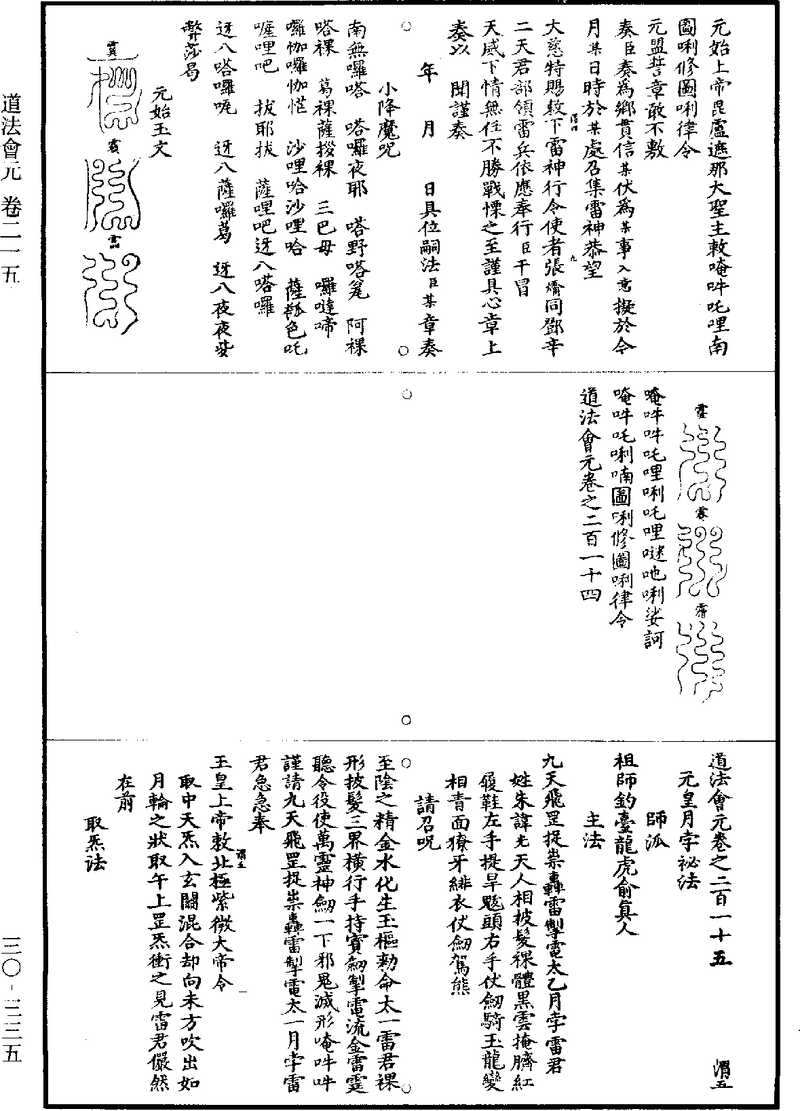 元始上帝毘盧遮那大聖主敕唵吽吒哩南
圖唎修圖唎律令
元盟誓章敢不敷
奏臣奏為鄉貫信某伏為某事入意擬於今
月某日時於某處召集雷神恭望
大慈特賜敕下雷神行令使者張燏同鄧辛
二天君部領雷兵依應奉行臣干冒
天威下情無任不勝戰慄之至謹具心章上
奏以聞謹奏
年 月 日具位嗣法臣某章奏
小降魔咒
南無囉塔 塔囉夜耶 塔野塔䇪 阿裸
塔裸 葛裸薩撥裸 三巴毋 囉噠啼
囉怮囉怮恾 沙哩哈沙哩哈 薩㼐色吒
喔哩吧 拔耶拔 薩哩吧迓八塔囉
迓八塔囉呃 迓八薩囉葛 迓八夜夜㱔
弊莎曷
元始玉文
唵吽吽吒哩唎吒哩噠吔唎娑訶
唵吽吒唎喃圖唎修圖唎律令
道法會元卷之二百一十四
道法會元卷之二百一十五 渭五
元皇月孛祕法
師派
祖師釣臺龍虎俞真人
主法
九天飛罡捉祟轟雷掣電太乙月孛雷君
姓朱諱光天人相披髮裸體黑雲掩臍紅
履鞋左手提旱魃頭右手仗劒騎玉龍變
相青面獠牙緋衣仗劒駕熊
請召咒
至陰之精金水化生玉樞勑命太一雷君裸
形披髮三界橫行手持寶劒掣電流金雷霆
聽令役使萬靈神劒一下邪鬼滅形唵吽吽
謹請九天飛罡捉祟轟雷掣電太一月孛雷
君急急奉
玉皇上帝敕北極紫微大帝令
取中天炁入玄關混合却向未方吹出如
月輪之狀取午上罡炁衝之見雷君儼然
在前
取炁法
道法會元 卷二一五
三〇‐三三五